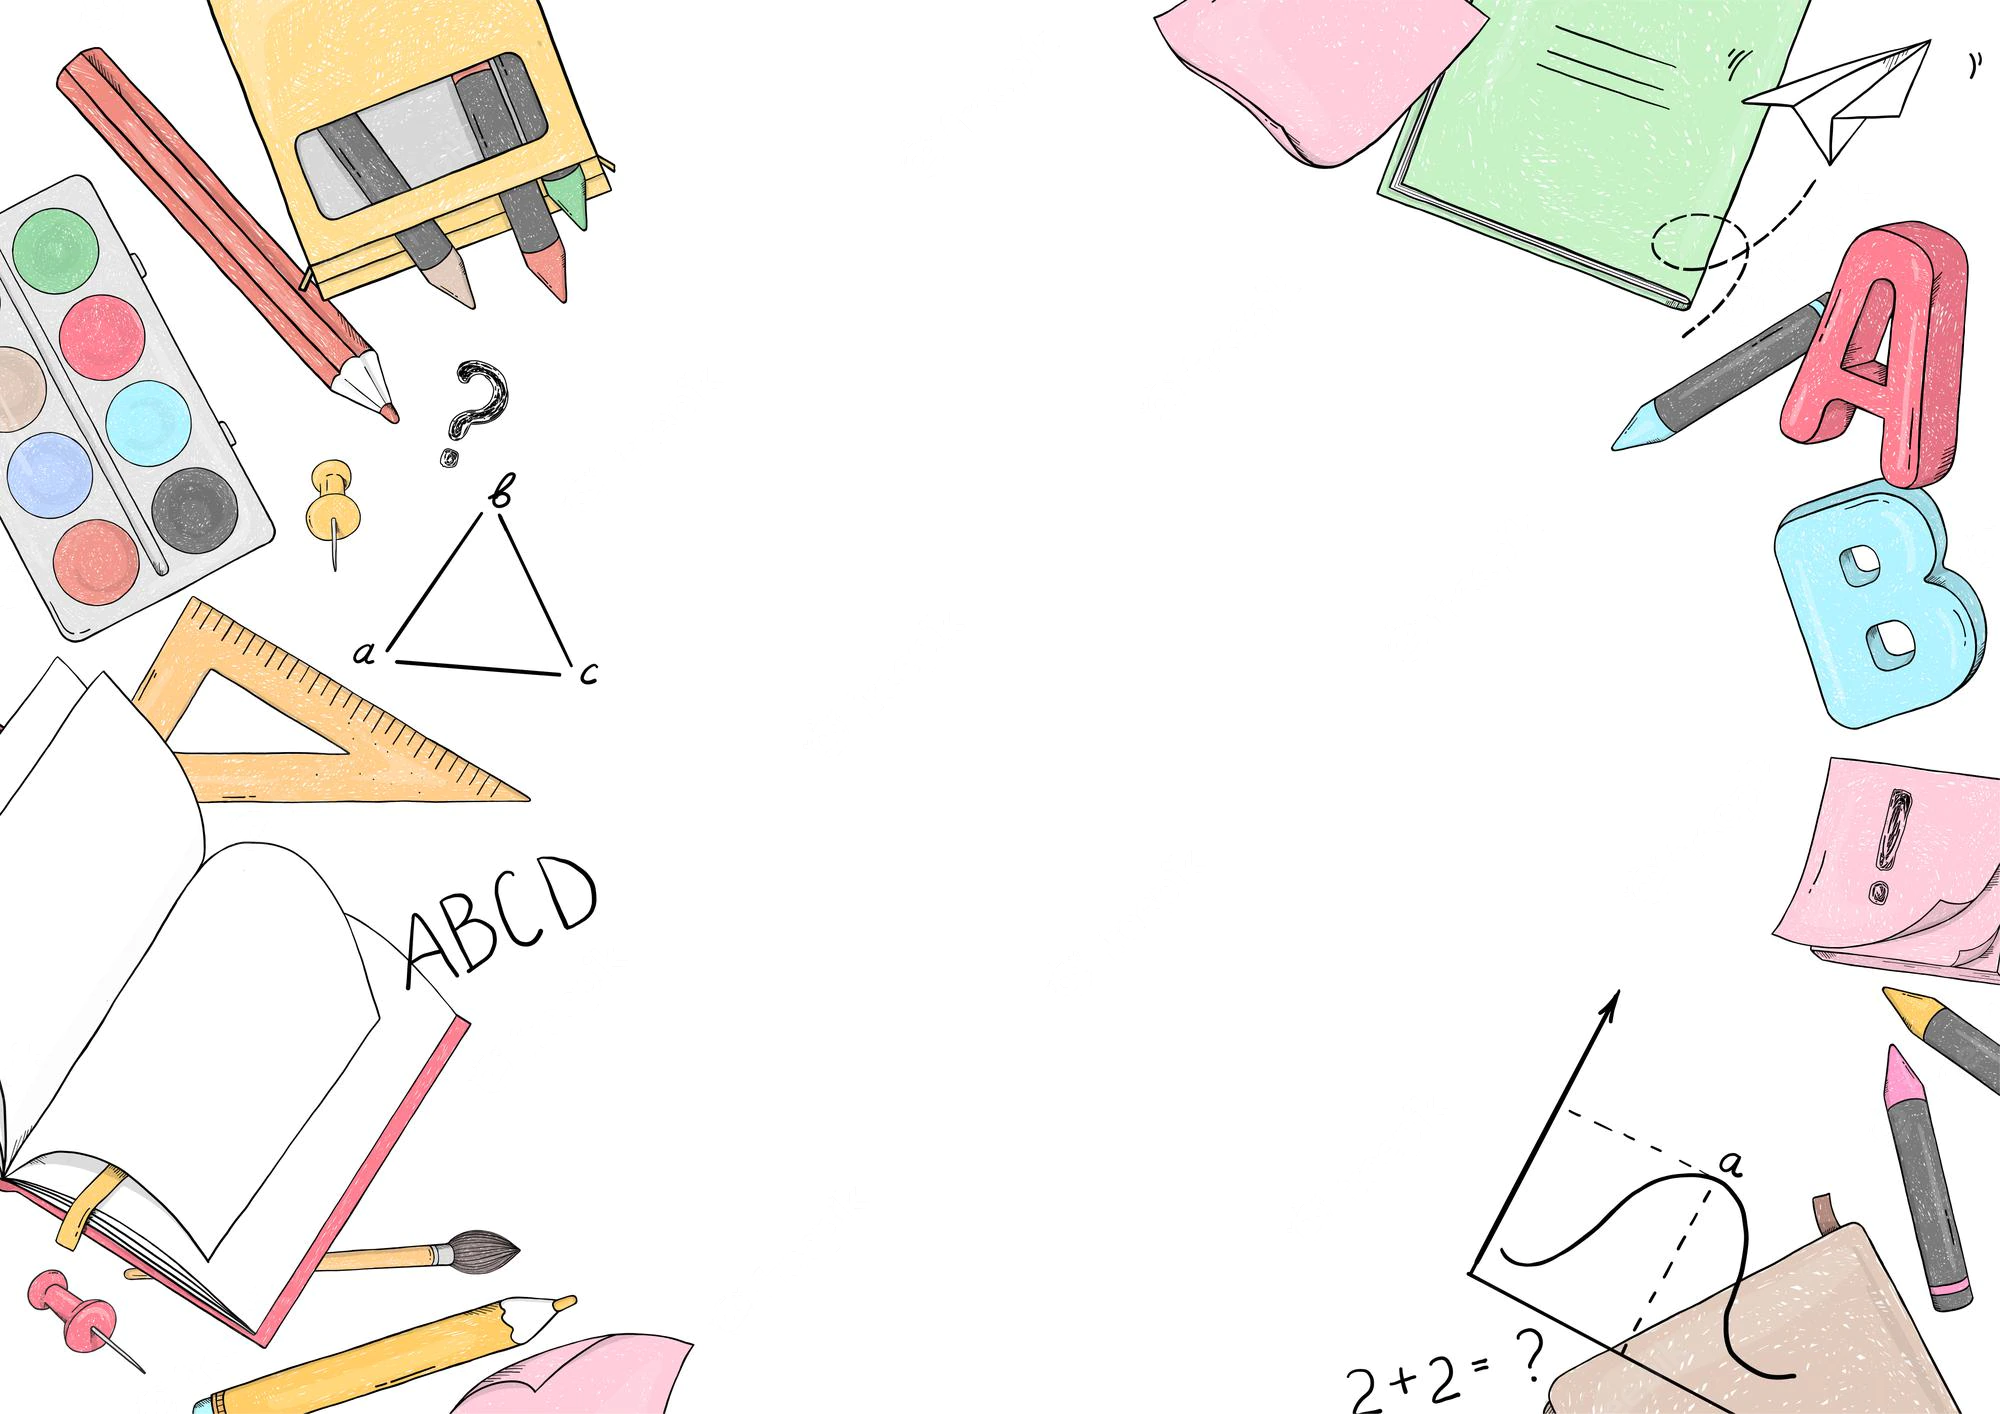 ?
b
a c
ABCD
A
B
!
a
2+2=?